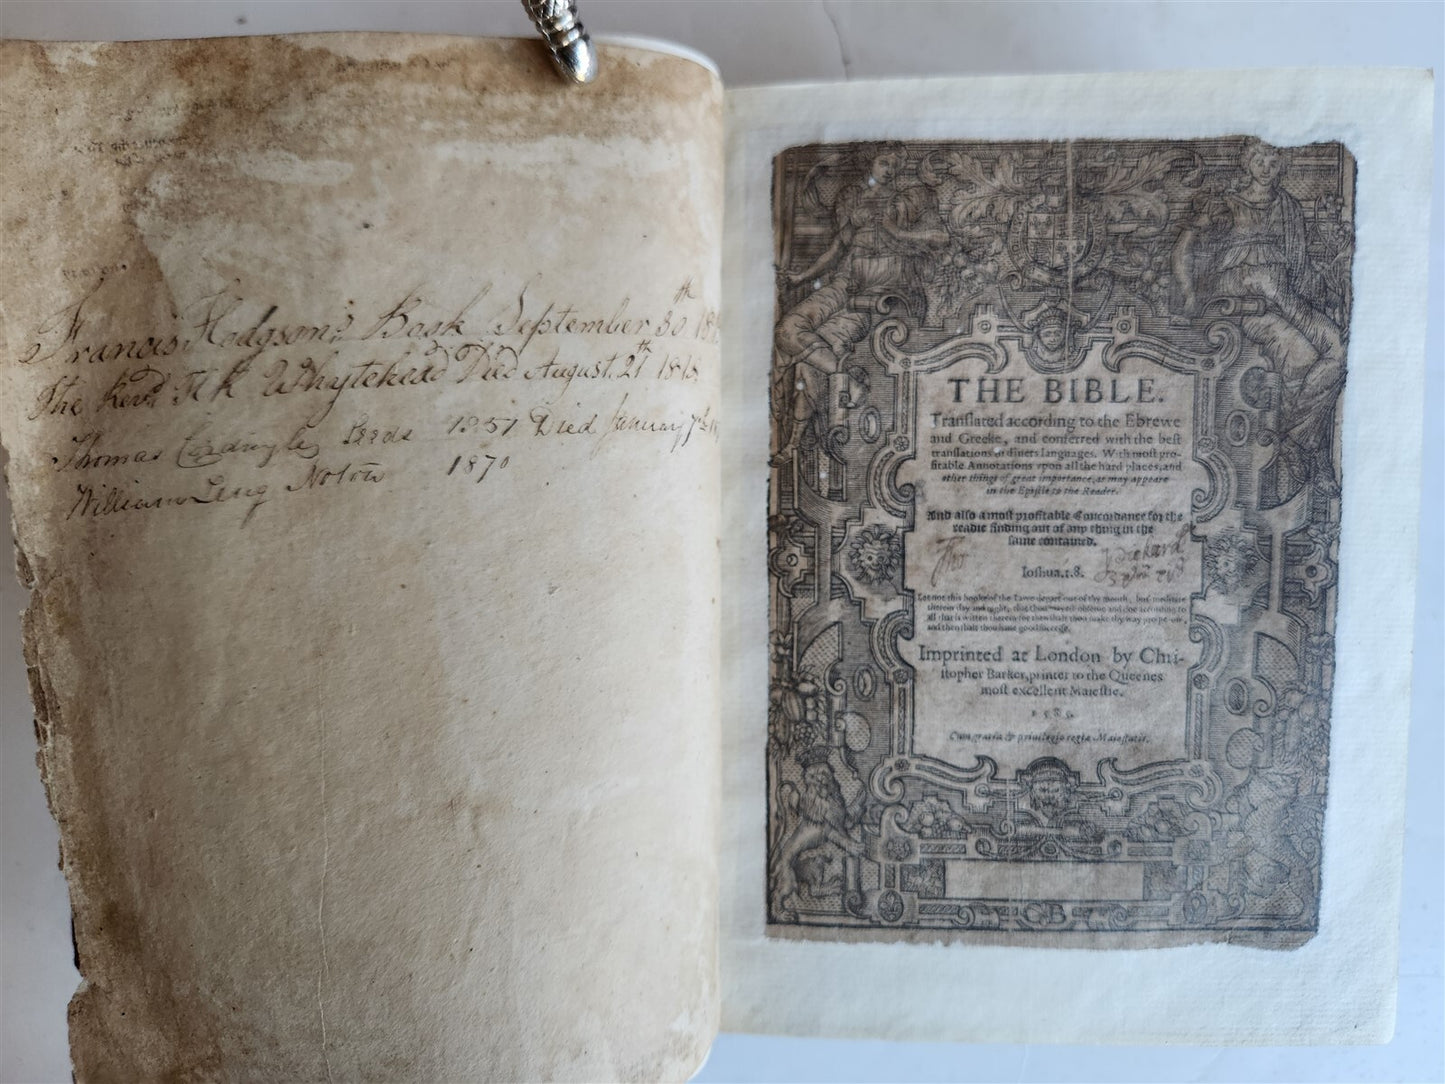 Francis Hodgson's Book September 30th 18
The Revd T K Whytehead Died August 21st 1818
Thomas Leeds 1851 Died January 7th
William Leng 1870
THE BIBLE.
Translated according to the Ebrewe
and Greeke, and conferred with the best
translations in diuers languages. With most pro-
fitable Annotations vpon all the hard places, and
other things of great importance, as may appeare
in the Epistle to the Reader.
And also a most profitable Concordance for the
readie finding out of any thing in the
same conteined.
Tho
Ioshua.1.8.
Let not this booke of the Lawe depart out of thy mouth, but meditate
therein day and night, that thou mayest obserue and doe according to
all that is written therein: for then shalt thou make thy way prosperous,
and then shalt thou haue good successe.
Imprinted at London by Chri-
stopher Barker, printer to the Queenes
most excellent Maiestie.
1589.
Cum gratia & priuilegio regiæ Maiestatis.
CB